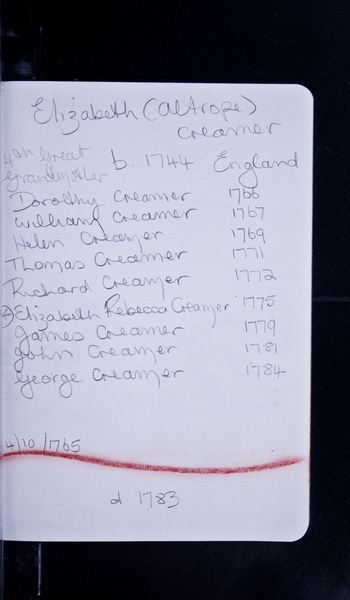 Elizabeth (Altrope)
Creamer
4th Great
Grandmother
b. 1744 England
Dorothy Creamer 1766
William Creamer 1767
Helen Creamer 1769
Thomas Creamer 1771
Richard Creamer 1772
Elizabeth Rebecca Creamer 1775
James Creamer 1779
John Creamer 1781
George Creamer 1784
4/10/1765
d. 1783